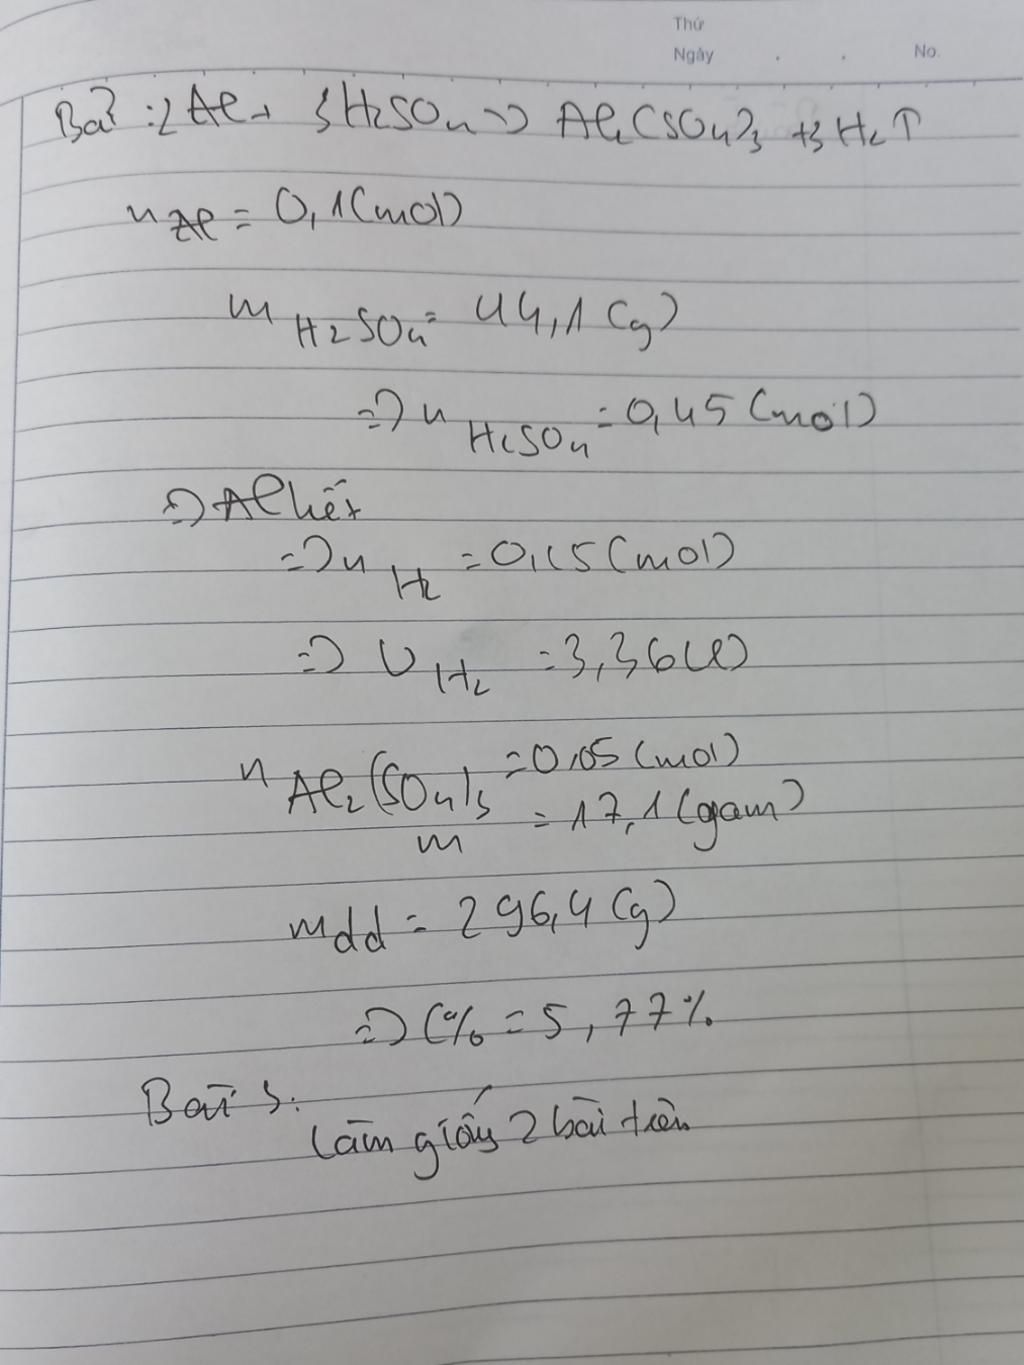 Thứ
Ngày . . No.
Bài 2: 2Al + 3H2SO4 => Al2(SO4)3 + 3H2↑
nAl = 0,1(mol)
mH2SO4 = 44,1(g)
=> nH2SO4 = 0,45(mol)
=> Al hết
=> nH2 = 0,15(mol)
=> VH2 = 3,36(l)
nAl2(SO4)3 = 0,05(mol)
m = 17,1(gam)
mdd = 296,4(g)
=> C% = 5,77%
Bài 3:
Làm giống 2 bài trên